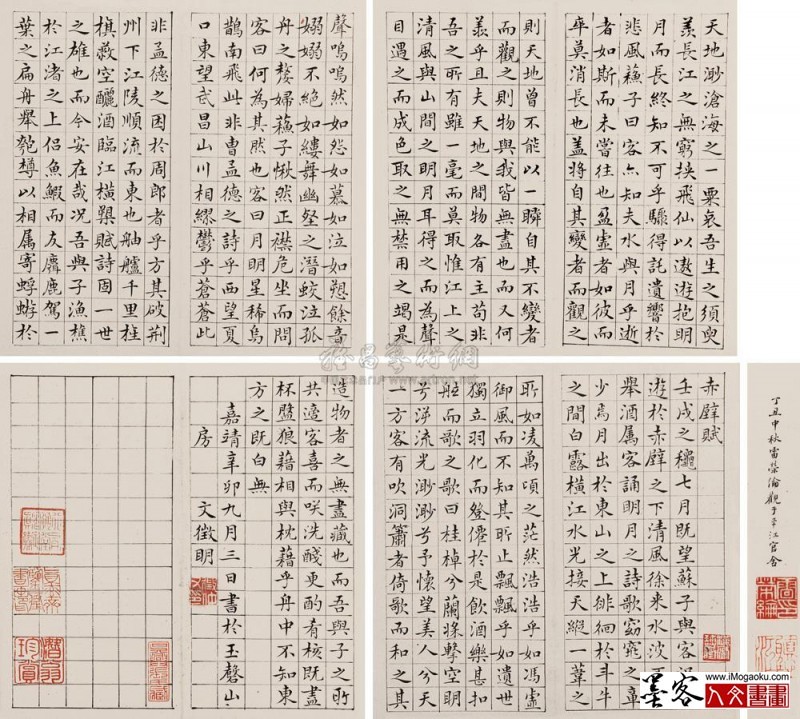 赤壁賦
壬戌之穐七月既望蘇子與客
遊於赤壁之下清風徐來水波不
舉酒属客誦明月之詩歌窈窕之章
少焉月出於東山之上徘徊於斗牛
之間白露橫江水光接天縱一葦之
所如凌萬頃之茫然浩浩乎如馮虛
御風而不知其所止飄飄乎如遺世
獨立羽化而登僊於是飲酒樂甚扣
舷而歌之歌曰桂棹兮蘭槳擊空明
兮泝流光渺渺兮予懷望美人兮天
一方客有吹洞簫者倚歌而和之其
聲嗚嗚然如怨如慕如泣如愬餘音
嫋嫋不絕如縷舞幽壑之潛蛟泣孤
舟之嫠婦蘇子愀然正襟危坐而問
客曰何為其然也客曰月明星稀烏
鵲南飛此非曹孟德之詩乎西望夏
口東望武昌山川相繆鬱乎蒼蒼此
非孟德之困於周郎者乎方其破荊
州下江陵順流而東也舳艫千里旌
旗蔽空釃酒臨江橫槊賦詩固一世
之雄也而今安在哉況吾與子漁樵
於江渚之上侶魚鰕而友麋鹿駕一
葉之扁舟舉匏樽以相属寄蜉蝣於
天地渺滄海之一粟哀吾生之須臾
羨長江之無窮挾飛仙以遨遊抱明
月而長終知不可乎驟得託遺響於
悲風蘇子曰客亦知夫水與月乎逝
者如斯而未嘗往也盈虛者如彼而
卒莫消長也蓋將自其變者而觀之
則天地曾不能以一瞬自其不變者
而觀之則物與我皆無盡也而又何
羨乎且夫天地之間物各有主苟非
吾之所有雖一毫而莫取惟江上之
清風與山間之明月耳得之而為聲
目遇之而成色取之無禁用之竭是
造物者之無盡藏也而吾與子之所
共適客喜而咲洗醆更酌肴核既盡
杯盤狼藉相與枕藉乎舟中不知東
方之既白無
嘉靖辛卯九月三日書於玉磬山
房 文徵明
丁丑中秋雷榮倫觀于章江官舍
墨客
人文書畫
www.iMogaoku.com